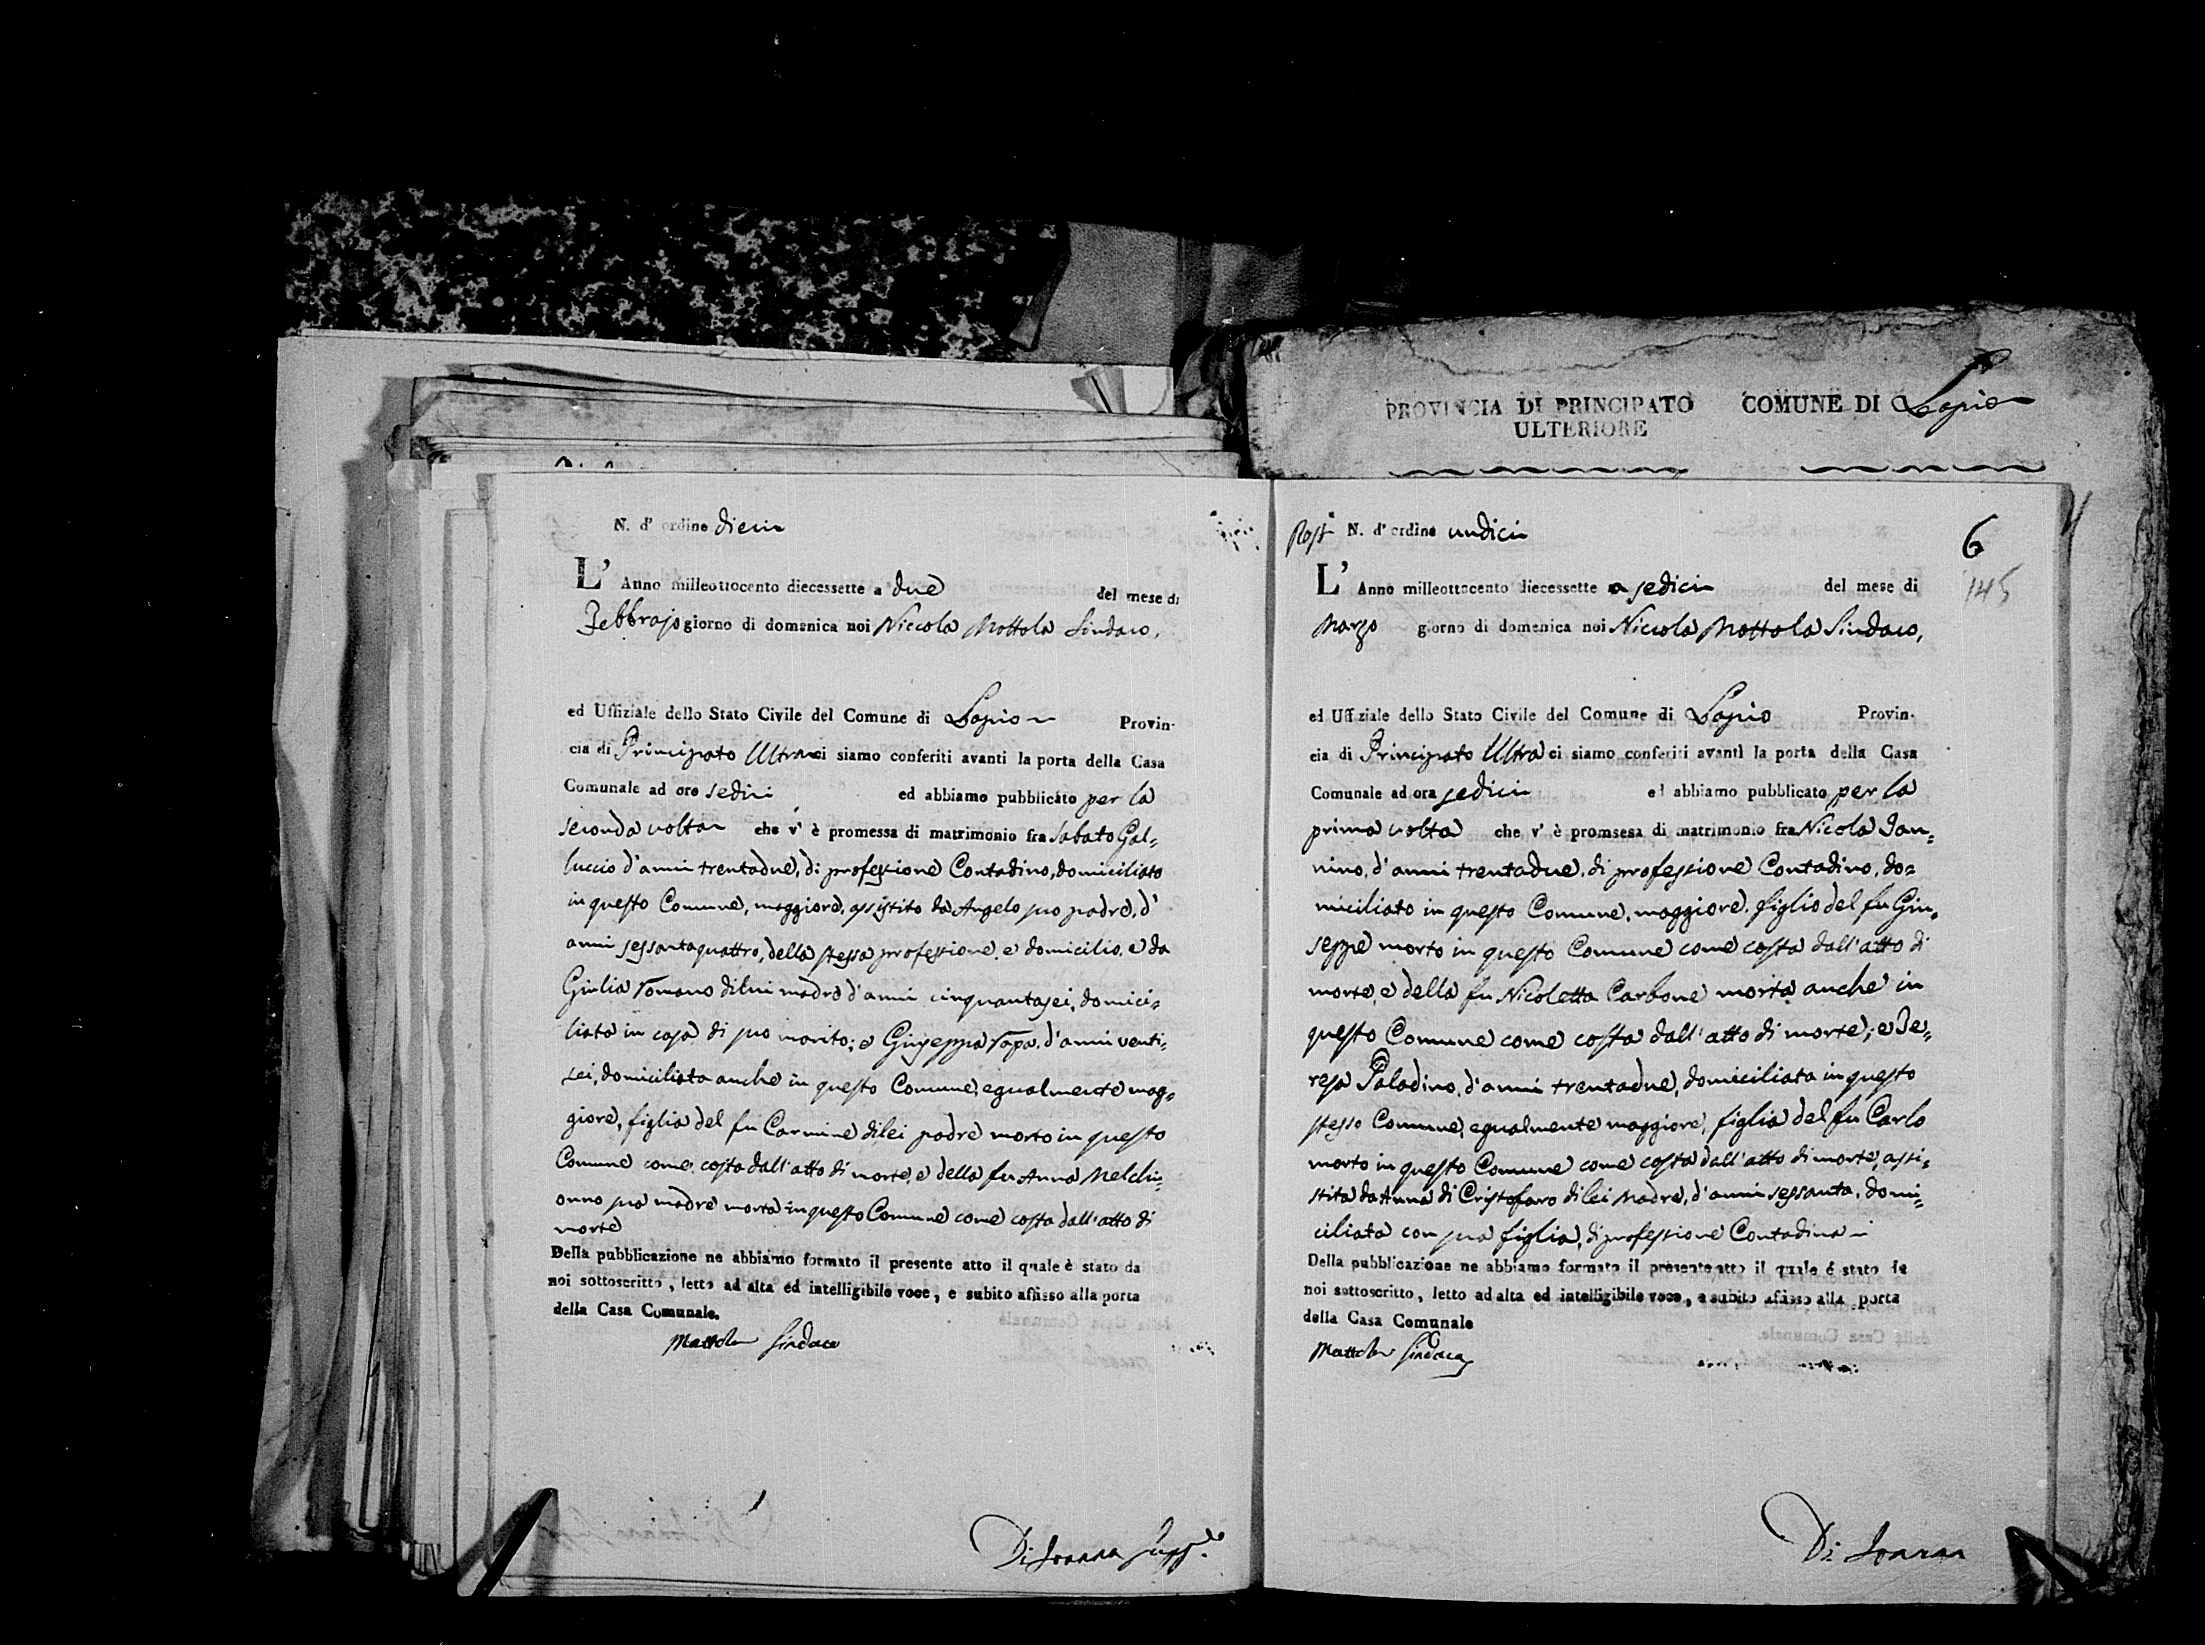 PROVINCIA DI PRINCIPATO
ULTERIORE
COMUNE DI Lapio
N. d' ordine dieci
L' Anno milleottocento diecessette a due del mese di
Febbrajo giorno di domenica noi Niccola Mottola Sindaco,
ed Uffiziale dello Stato Civile del Comune di Lapio Provin-
cia di Principato Ultra ci siamo conferiti avanti la porta della Casa
Comunale ad ore sedici ed abbiamo pubblicato per la
seconda volta che v' è promessa di matrimonio fra Sabato Gal=
luccio d'anni trentadue, di professione Contadino, domiciliato
in questo Comune, maggiore, assistito da Angelo suo padre, d'
anni sessantaquattro, della stessa professione, e domicilio, e da
Giulia Romano di lui madre d'anni cinquantasei, domici=
liata in casa di suo marito; e Giuseppa Papa, d'anni venti=
sei, domiciliata anche in questo Comune, egualmente mag=
giore, figlia del fu Carmine di lei padre morto in questo
Comune come costa dall'atto di morte, e della fu Anna Melchi=
onno sua madre morta in questo Comune come costa dall'atto di
morte
Della pubblicazione ne abbiamo formato il presente atto il quale è stato da
noi sottoscritto, letto ad alta ed intelligibile voce, e subito affisso alla porta
della Casa Comunale.
Mottola Sindaco
Di Ioanna Supp.te
N. d' ordine undici
6
145
L' Anno milleottocento diecessette a sedici del mese di
Marzo giorno di domenica noi Nicola Mottola Sindaco,
ed Uffiziale dello Stato Civile del Comune di Lapio Provin-
cia di Principato Ultra ci siamo conferiti avanti la porta della Casa
Comunale ad ora sedici ed abbiamo pubblicato per la
prima volta che v' è promsesa di matrimonio fra Nicola Ian=
nino, d'anni trentadue, di professione Contadino, do=
miciliato in questo Comune, maggiore, figlio del fu Giu=
seppe morto in questo Comune come costa dall'atto di
morte, e della fu Nicoletta Carbone morta anche in
questo Comune come costa dall'atto di morte; e Te=
resa Paladino, d'anni trentadue, domiciliata in questo
stesso Comune, egualmente maggiore, figlia del fu Carlo
morto in questo Comune come costa dall'atto di morte, assi=
stita da Anna di Cristofaro di lei Madre, d'anni sessanta, domi=
ciliata con sua figlia, di professione Contadina
Della pubblicazione ne abbiamo formato il presente atto il quale é stato da
noi sottoscritto, letto ad alta ed intelligibile voce, e subito afisso alla porta
della Casa Comunale
Mottola Sindaco
Di Ioanna